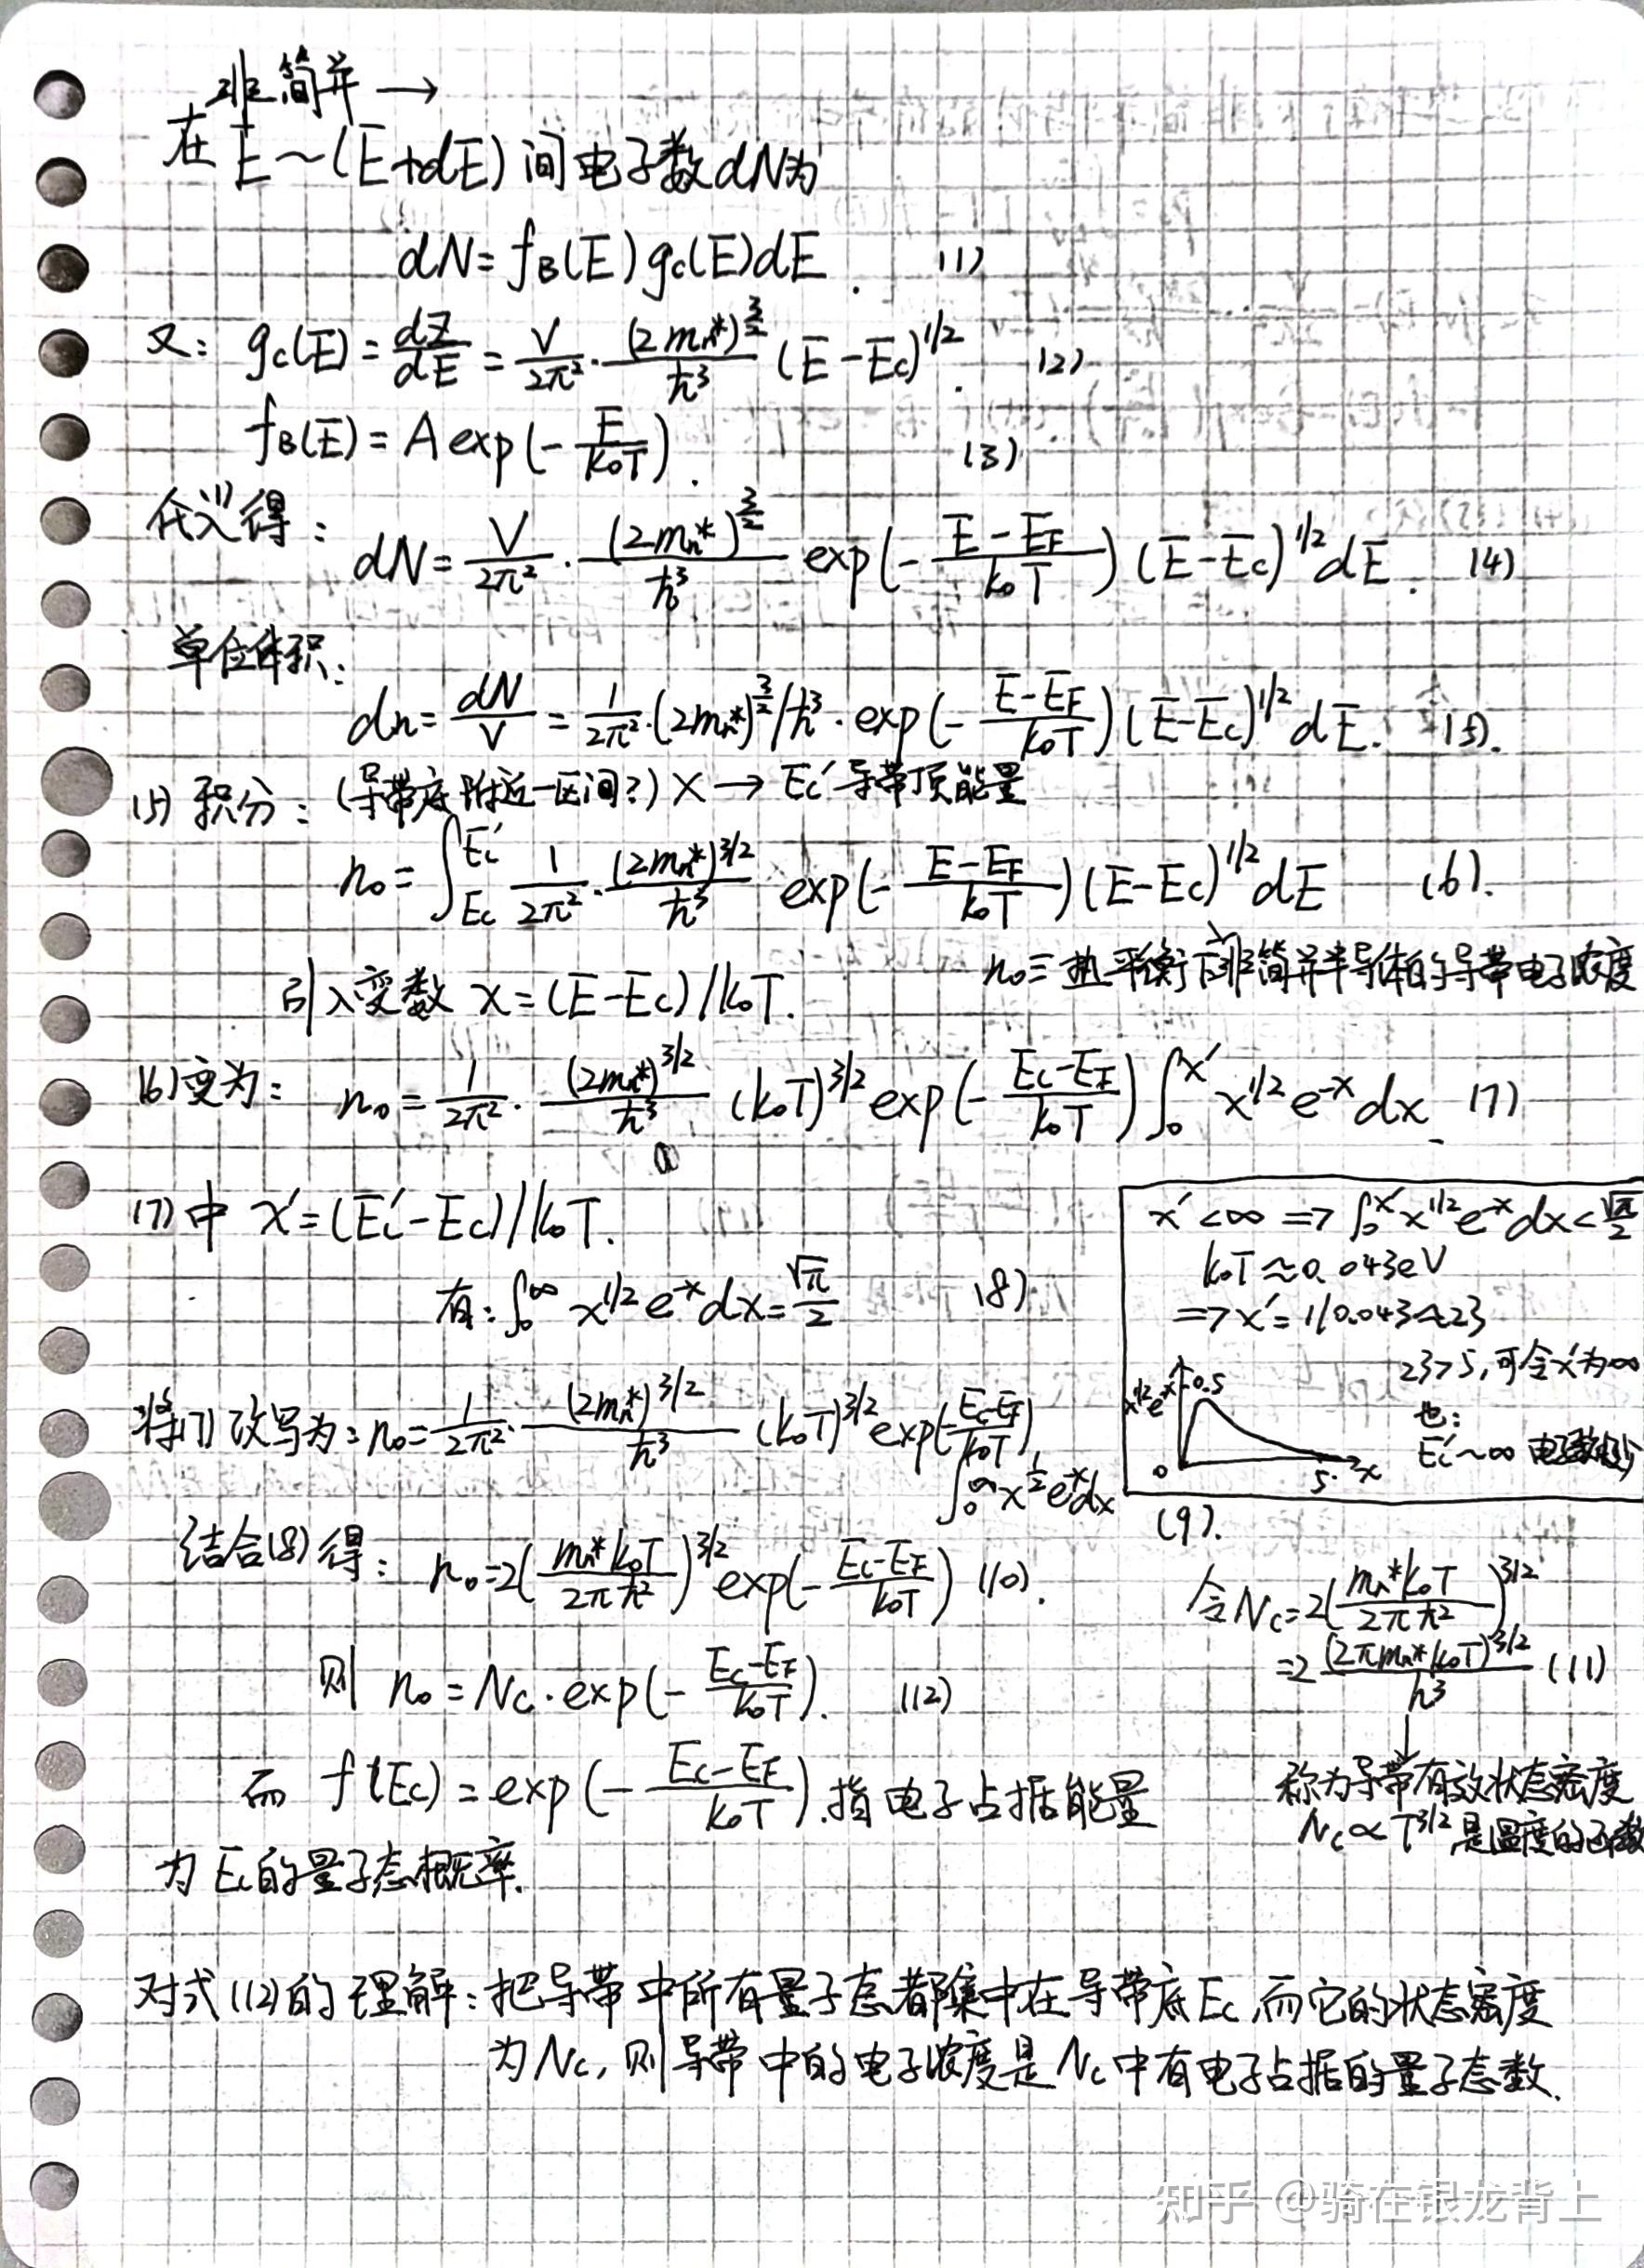 非简并 →
在 E～(E+dE) 间电子数dN为
dN = f_B(E) g_c(E)dE. (1)
又: g_c(E) = dZ/dE = V/2π² · (2m_n*)^{3/2}/ħ³ (E-E_c)^{1/2}. (2)
f_B(E) = A exp(- E/k₀T). (3)
代入(1)得: dN = V/2π² · (2m_n*)^{3/2}/ħ³ exp(- (E-E_F)/k₀T) (E-E_c)^{1/2} dE. (4)
单位体积:
dn = dN/V = 1/2π² · (2m_n*)^{3/2}/ħ³ · exp(- (E-E_F)/k₀T) (E-E_c)^{1/2} dE. (5).
(5) 积分: (导带底附近一区间?) X → E_c' 导带顶能量
n₀ = ∫_{E_c}^{E_c'} 1/2π² · (2m_n*)^{3/2}/ħ³ exp(- (E-E_F)/k₀T) (E-E_c)^{1/2} dE (6).
n₀ ≡ 热平衡下非简并半导体的导带电子浓度
引入变数 x = (E-E_c)/k₀T.
(6)变为: n₀ = 1/2π² · (2m_n*)^{3/2}/ħ³ (k₀T)^{3/2} exp(- (E_c-E_F)/k₀T) ∫₀^{x'} x^{1/2} e^{-x} dx. (7)
(7)中 x' = (E_c'-E_c)/k₀T.
有: ∫₀^∞ x^{1/2} e^{-x} dx = √π/2 (8)
x' < ∞ => ∫₀^{x'} x^{1/2} e^{-x} dx < √π/2
k₀T ≈ 0.043eV
=> x' = 1/0.043 ≈ 23
23>5, 可令x'为∞
也:
E_c'～∞ 电子数极少
x^{1/2}e^{-x} 0.5
0 5 x
将(7)改写为: n₀ = 1/2π² · (2m_n*)^{3/2}/ħ³ (k₀T)^{3/2} exp(- (E_c-E_F)/k₀T)
∫₀^∞ x^{1/2} e^{-x} dx (9).
结合(8)得: n₀ = 2(m_n*k₀T/2πħ²)^{3/2} exp(- (E_c-E_F)/k₀T) (10).
令 N_c = 2(m_n*k₀T/2πħ²)^{3/2}
= 2 (2πm_n*k₀T)^{3/2}/h³ (11)
则 n₀ = N_c · exp(- (E_c-E_F)/k₀T). (12)
↓
称为导带有效状态密度
N_c ∝ T^{3/2} 是温度的函数
而 f(E_c) = exp(- (E_c-E_F)/k₀T). 指电子占据能量
为 E_c的量子态概率.
对式(12)的理解: 把导带中所有量子态都集中在导带底E_c, 而它的状态密度
为N_c, 则导带中的电子浓度是N_c中有电子占据的量子态数.
知乎 @骑在银龙背上